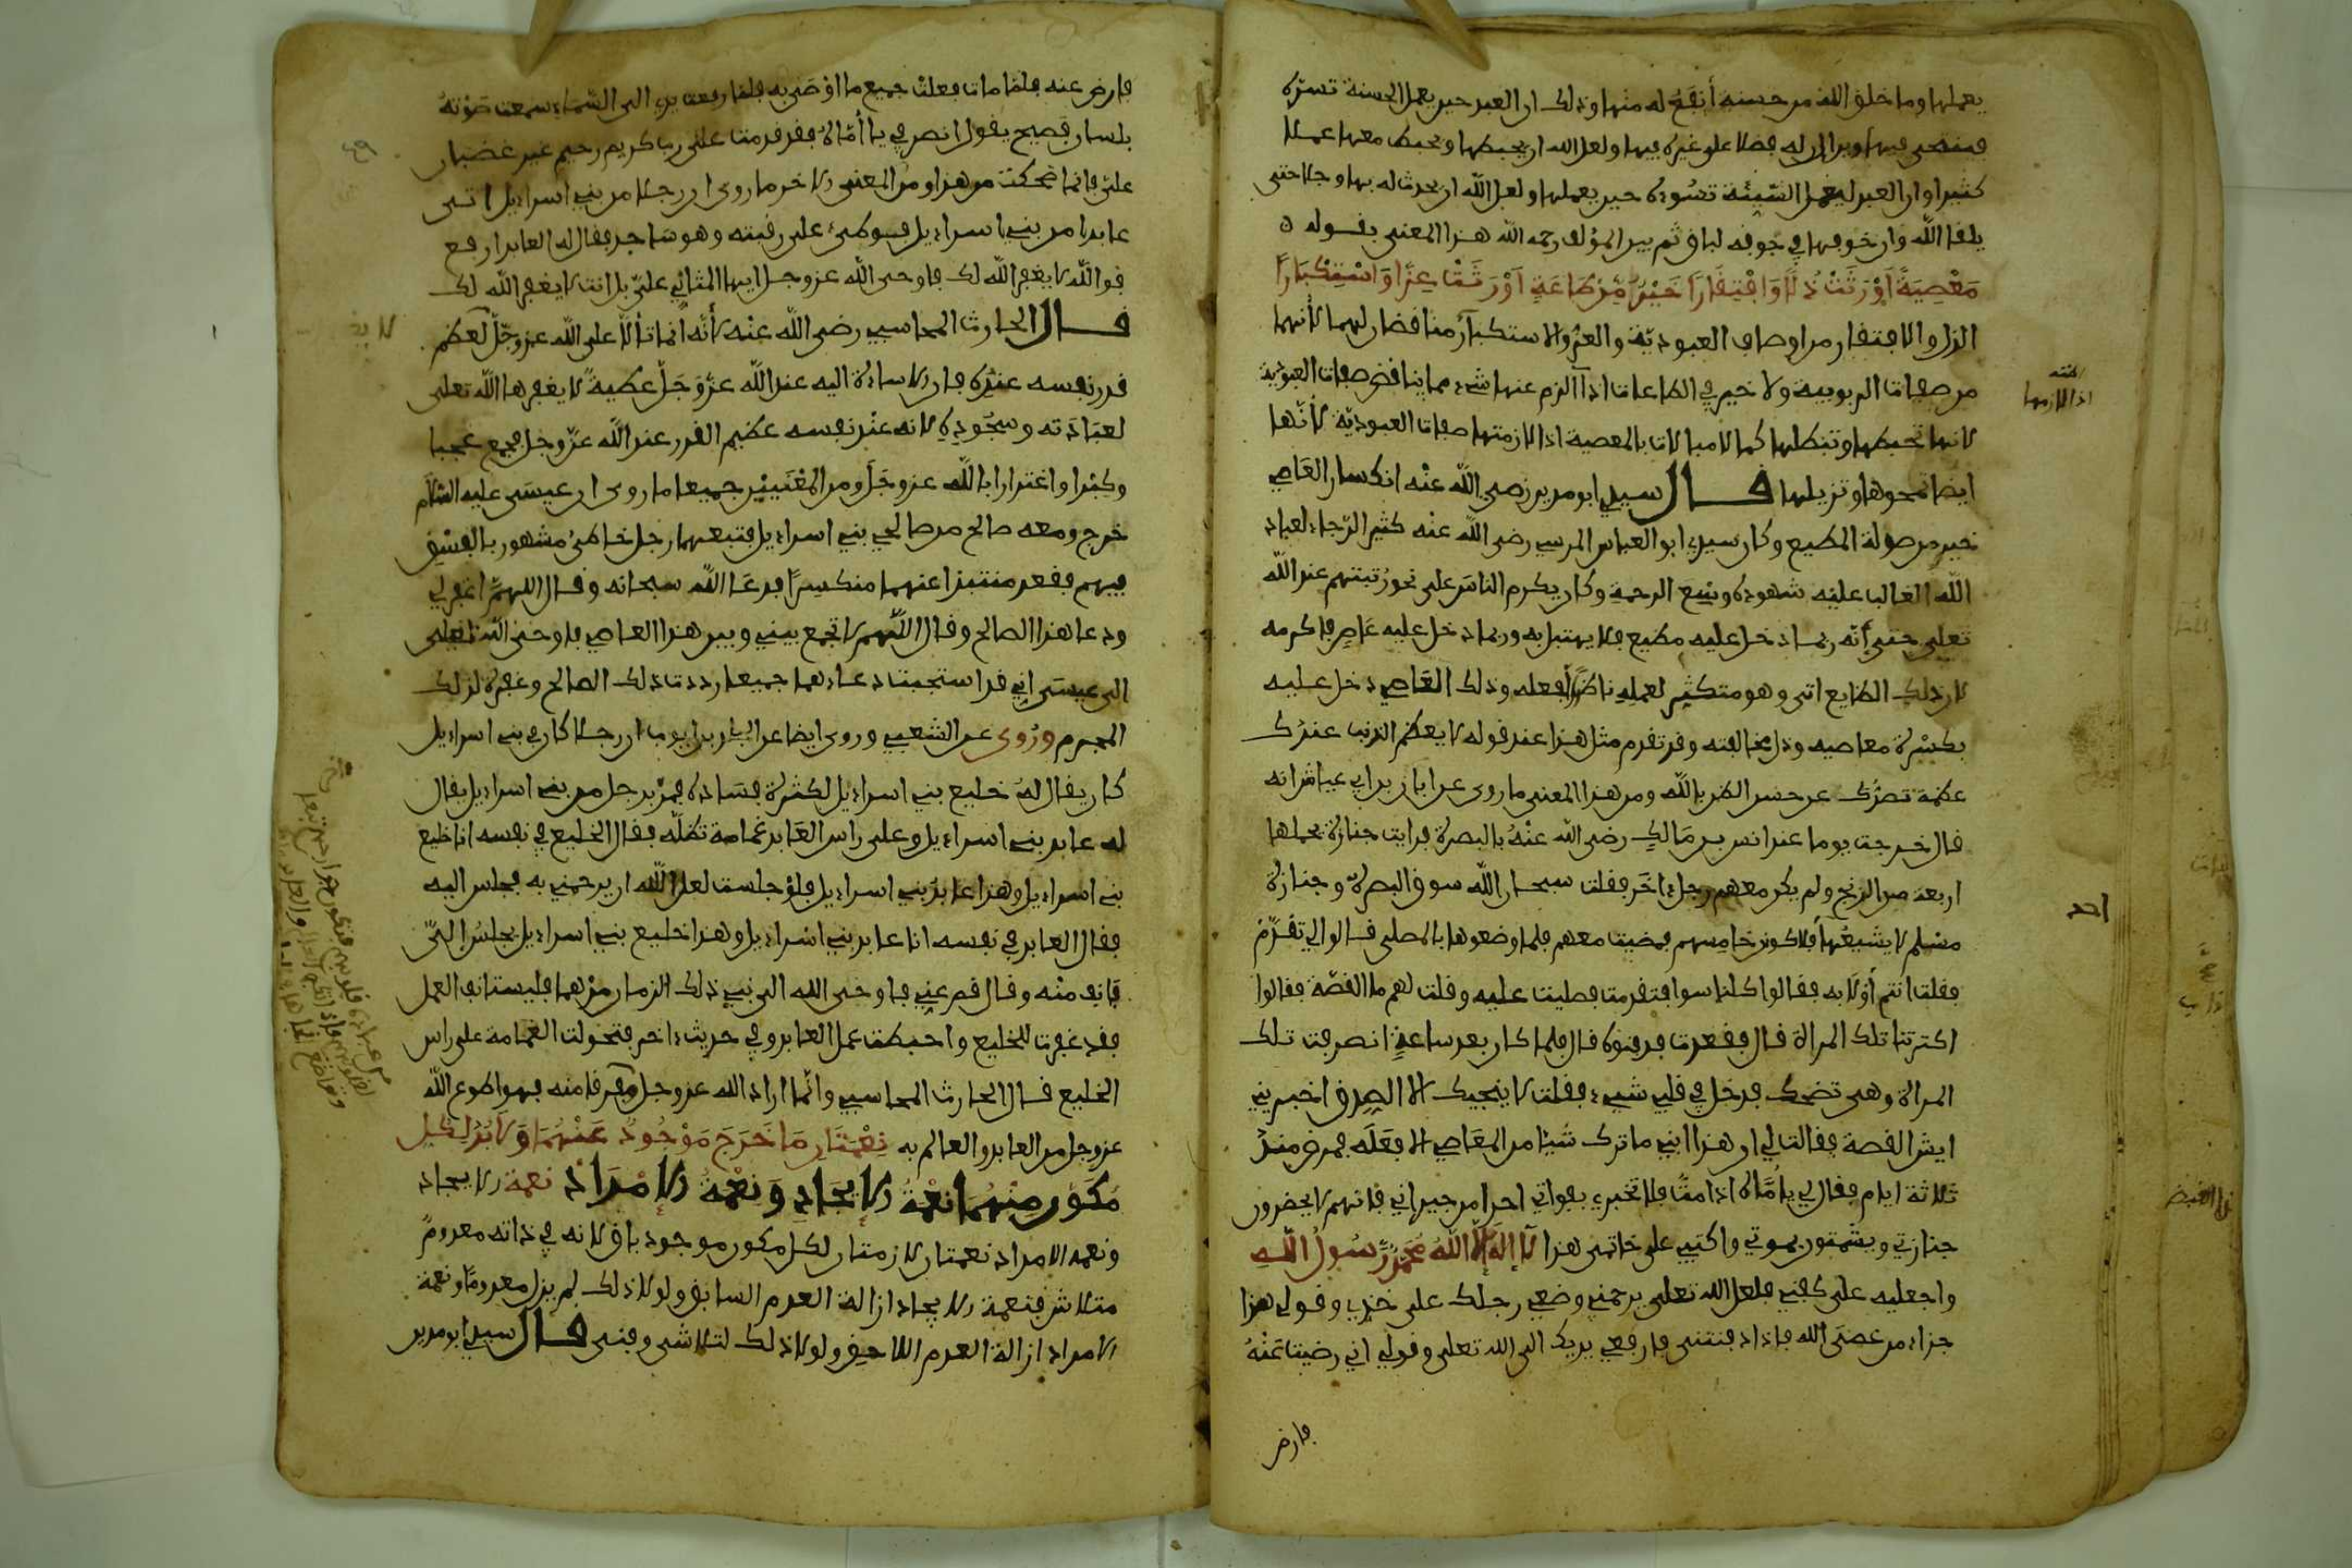 يعملها وما خلق الله من حسنة أنفع له منها وذلك ان العبد حين يعمل الحسنة تسره
فيتمنى فيها ويرا ان له فضلا على غيره فيها ولعل الله ان يحبطها ويحبط معها عملا
كثيرا وان العبد ليعمل السيئة تسوءه حين يعملها ولعل الله ان يحدث له بها وجلا حتى
يلقا الله وان خوفها في جوفه لباق ثم بين المؤلف رحمه الله هذا المعنى بقوله
مَعْصِيَةٌ أَوْرَثَتْ ذُلًّا وَافْتِقَارًا خَيْرٌ مِّن طَاعَةٍ أَوْرَثَتْ عِزًّا وَاسْتِكْبَارًا
الذل والافتقار من اوصاف العبودية والعز والاستكبار مناقضان لهما لأنهما
من صفات الربوبية ولا خير في الطاعات اذا الزم عنها شيء مما يناقض صفات العبودية
لانها تحبطها وتبطلها كما لا مبالات بالمعصية اذا لازمتها صفات العبودية لأنها
ايضا تمحوها وتزيلها قال سيدي ابو مدين رضي الله عنه انكسار العاصي
خير من صولة المطيع وكان سيدي ابو العباس المرسي رضي الله عنه كثير الرجاء لعباد
الله الغالب عليه شهوده وسع الرحمة وكان يكرم الناس على نحو رتبتهم عند الله
تعلى حتى أنه ربما دخل عليه مطيع فلا يهتبل به وربما دخل عليه عاص فاكرمه
لان ذلك الطايع اتى وهو متكثر لعمله ناظرا لفعله وذلك العاصي دخل عليه
بكسرة معاصيه وذل مخالفته وقد تقدم مثل هذا عند قوله لا يعظم الذنب عندك
عظمة تصدك عن حسن الظن بالله ومن هذا المعنى ما روى عن ابان بن ابي عياش انه
قال خرجت يوما عند انس بن مالك رضي الله عنه بالبصرة فرايت جنازة يحملها
اربعة من الزنج ولم يكن معهم رجل اخر فقلت سبحان الله سوق البصرة وجنازة
مسلم لا يشيعها فلاكونن خامسهم فمضيت معهم فلما وضعوها بالمصلى قالوا لي تقدم
فقلت انتم أولا به فقالوا كلنا سوا فتقدمت فصليت عليه وقلت لهم ما القصة فقالوا
اكترتنا تلك المراة قال فقعدت فدفنوه قال فلما كان بعد ساعة انصرفت تلك
المراة وهي تضحك فدخل في قلبي شيء فقلت لا ينجيك الا الصدق اخبريني
ايش القصة فقالت لي ان هذا ابني ما ترك شيئا من المعاصي الا فعله فمرض منذ
ثلاثة ايام فقال لي يا أماه اذا مت فلا تخبري بوفاتي احدا من جيراني فانهم لا يحضرون
جنازتي ويشمتون بموتي واكتبي على خاتمي هذا لا إله إلا الله محمد رسول الله
واجعليه على كفني فلعل الله تعلى يرحمني وضعي رجلك على خدي وقولي هذا
جزاء من عصى الله فاذا دفنتني فارفعي يديك الى الله تعلى وقولي اني رضيت عنه
فارض
اذا لازمها
فارض عنه فلما مات فعلت جميع ما اوصى به فلما رفعت يدي الى السماء سمعت صوته
بلسان فصيح يقول انصرفي يا أماه فقد قدمت على رب كريم رحيم غير غضبان
علي فانما ضحكت من هذا ومن المعنى الاخر ما روى ان رجلا من بني اسراءيل اتى
عابدا من بني اسراءيل فوطئ على رقبته وهو ساجد فقال له العابد ارفع
فوالله لا يغفر الله لك فاوحى الله عز وجل ايها المتألي علي بل انت لا يغفر الله لك
قال الحارث المحاسبي رضي الله عنه لأنه انما تألا على الله عز وجل لعظم
قدر نفسه عنده فان الاساءة اليه عند الله عز وجل عظيمة لا يغفرها الله تعلى
لعبادته وسجوده لانه عند نفسه عظيم القدر عند الله عز وجل فجمع عجبا
وكبرا واغترارا بالله عز وجل ومن المعنيين جميعا ما روى ان عيسى عليه السلام
خرج ومعه صالح من صالحي بني اسراءيل فتبعهما رجل خاطئ مشهور بالفسق
فيهم فقعد منتبذا عنهما منكسرا فدعا الله سبحانه وقال اللهم اغفر لي
ودعا هذا الصالح وقال اللهم لا تجمع بيني وبين هذا العاصي فاوحى الله تعلى
الى عيسى اني قد استجبت دعاءهما جميعا رددت ذلك الصالح وغفرت لذلك
المجرم وروى عن الشعبي وروى ايضا عن الخليل بن ايوب ان رجلا كان في بني اسراءيل
كان يقال له خليع بني اسراءيل لكثرة فساده فمر برجل من بني اسراءيل يقال
له عابد بني اسراءيل وعلى راس العابد غمامة تظله فقال الخليع في نفسه انا خليع
بني اسراءيل وهذا عابد بني اسراءيل فلو جلست لعل الله ان يرحمني به فجلس اليه
فقال العابد في نفسه انا عابد بني اسراءيل وهذا خليع بني اسراءيل يجلس الي
فانف منه وقال قم عني فاوحى الله الى نبي ذلك الزمان مرهما فليستانفا العمل
فقد غفرت للخليع واحبطت عمل العابد وفي حديث اخر فتحولت الغمامة على راس
الخليع قال الحارث المحاسبي وانما اراد الله عز وجل منه فهو اطوع لله
عز وجل من العابد والعالم به نِعْمَتَانِ مَا خَرَجَ مَوْجُودٌ عَنْهُمَا وَلَابُدَّ لِكُلِّ
مُكَوَّنٍ مِنْهُمَا نِعْمَةُ الإيجَادِ وَنِعْمَةُ الإمْدَادِ نعمة الايجاد
ونعمة الامداد نعمتان لازمتان لكل مكون موجود باق لانه في ذاته معدوم
متلاش فنعمة الايجاد ازالة العدم السابق ولولا ذلك لم يزل معدوما ونعمة
الامداد ازالة العدم اللاحق ولولا ذلك لتلاشى وفنى قال سيدي ابو مدين